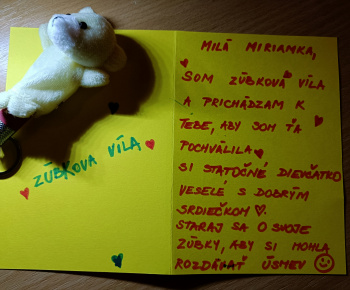 ZÚBKOVA VÍLA
MILÁ MIRIAMKA,
SOM ZÚBKOVÁ VÍLA
A PRICHÁDZAM K
TEBE, ABY SOM ŤA
POCHVÁLILA.
SI STATOČNÉ DIEVČATKO
VESELÉ S DOBRÝM
SRDIEČKOM ♡.
STARAJ SA O SVOJE
ZÚBKY, ABY SI MOHLA
ROZDÁVAŤ ÚSMEV ☺